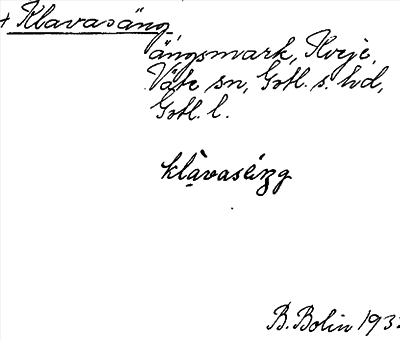 + Klavasäng
ängsmark, Kvie,
Väte sn, Gotl. s. hd,
Gotl. l.
klàvasäŋg
B. Bolin 193